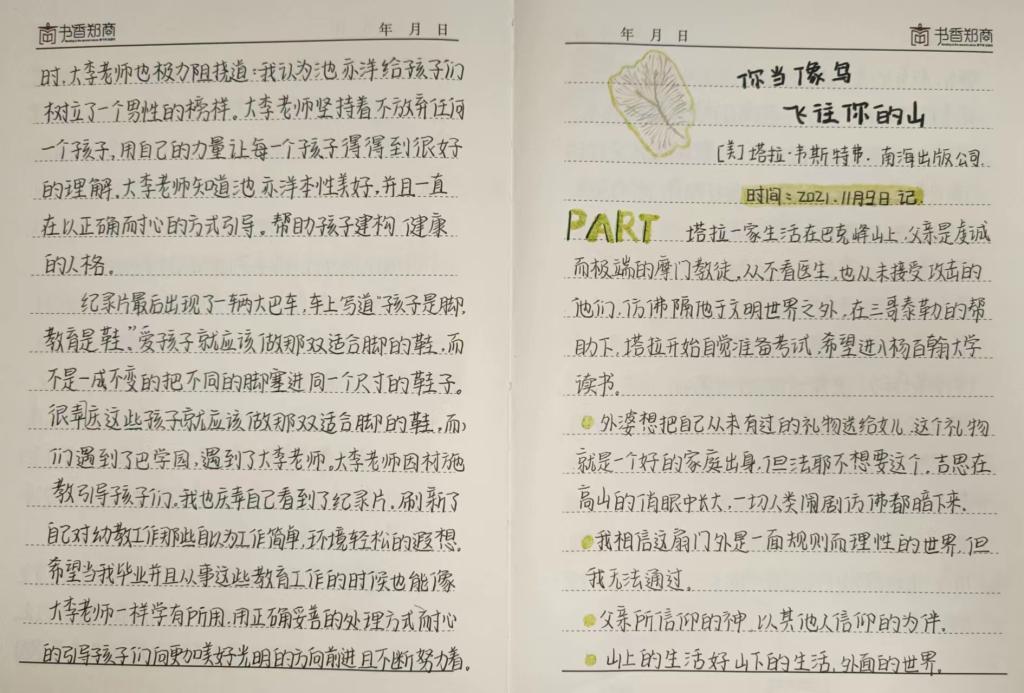 书香郑商
年 月 日
时,大李老师也极力阻挠道:我认为池亦洋给孩子们
树立了一个男性的榜样。大李老师坚持着不放弃任何
一个孩子,用自己的力量让每一个孩子得得到很好
的理解。大李老师知道池亦洋本性美好,并且一直
在以正确而耐心的方式引导。帮助孩子建构健康
的人格。
纪录片最后出现了一辆大巴车,车上写道“孩子是脚,
教育是鞋”,爱孩子就应该做那双适合脚的鞋,而
不是一成不变的把不同的脚塞进同一个尺寸的鞋子。
很幸运这些孩子就应该做那双适合脚的鞋,而
们遇到了巴学园,遇到了大李老师。大李老师因材施
教引导孩子们。我也庆幸自己看到了纪录片,刷新了
自己对幼教工作那些自以为工作简单,环境轻松的遐想。
希望当我毕业并且从事这些教育工作的时候也能像
大李老师一样学有所用,用正确妥善的处理方式而耐心
的引导孩子们向更加美好光明的方向前进且不断努力着。
年 月 日
书香郑商
你当像鸟
飞往你的山
[美]塔拉·韦斯特弗. 南海出版公司.
时间:2021.11月9日 记
PART 塔拉一家生活在巴克峰山上,父亲是虔诚
而极端的摩门教徒,从不看医生,也从未接受攻击的
他们,仿佛隔他于文明世界之外,在三哥泰勒的帮
助下,塔拉开始自觉准备考试,希望进入杨百翰大学
读书。
外婆想把自己从未有过的礼物送给女儿,这个礼物
就是一个好的家庭出身,但法耶不想要这个,吉思在
高山的俏眼中长大,一切人类闹剧仿佛都暗下来.
我相信这扇门外是一面规则而理性的世界,但
我无法通过。
父亲所信仰的神,以其他人信仰的为伴.
山上的生活好山下的生活,外面的世界。